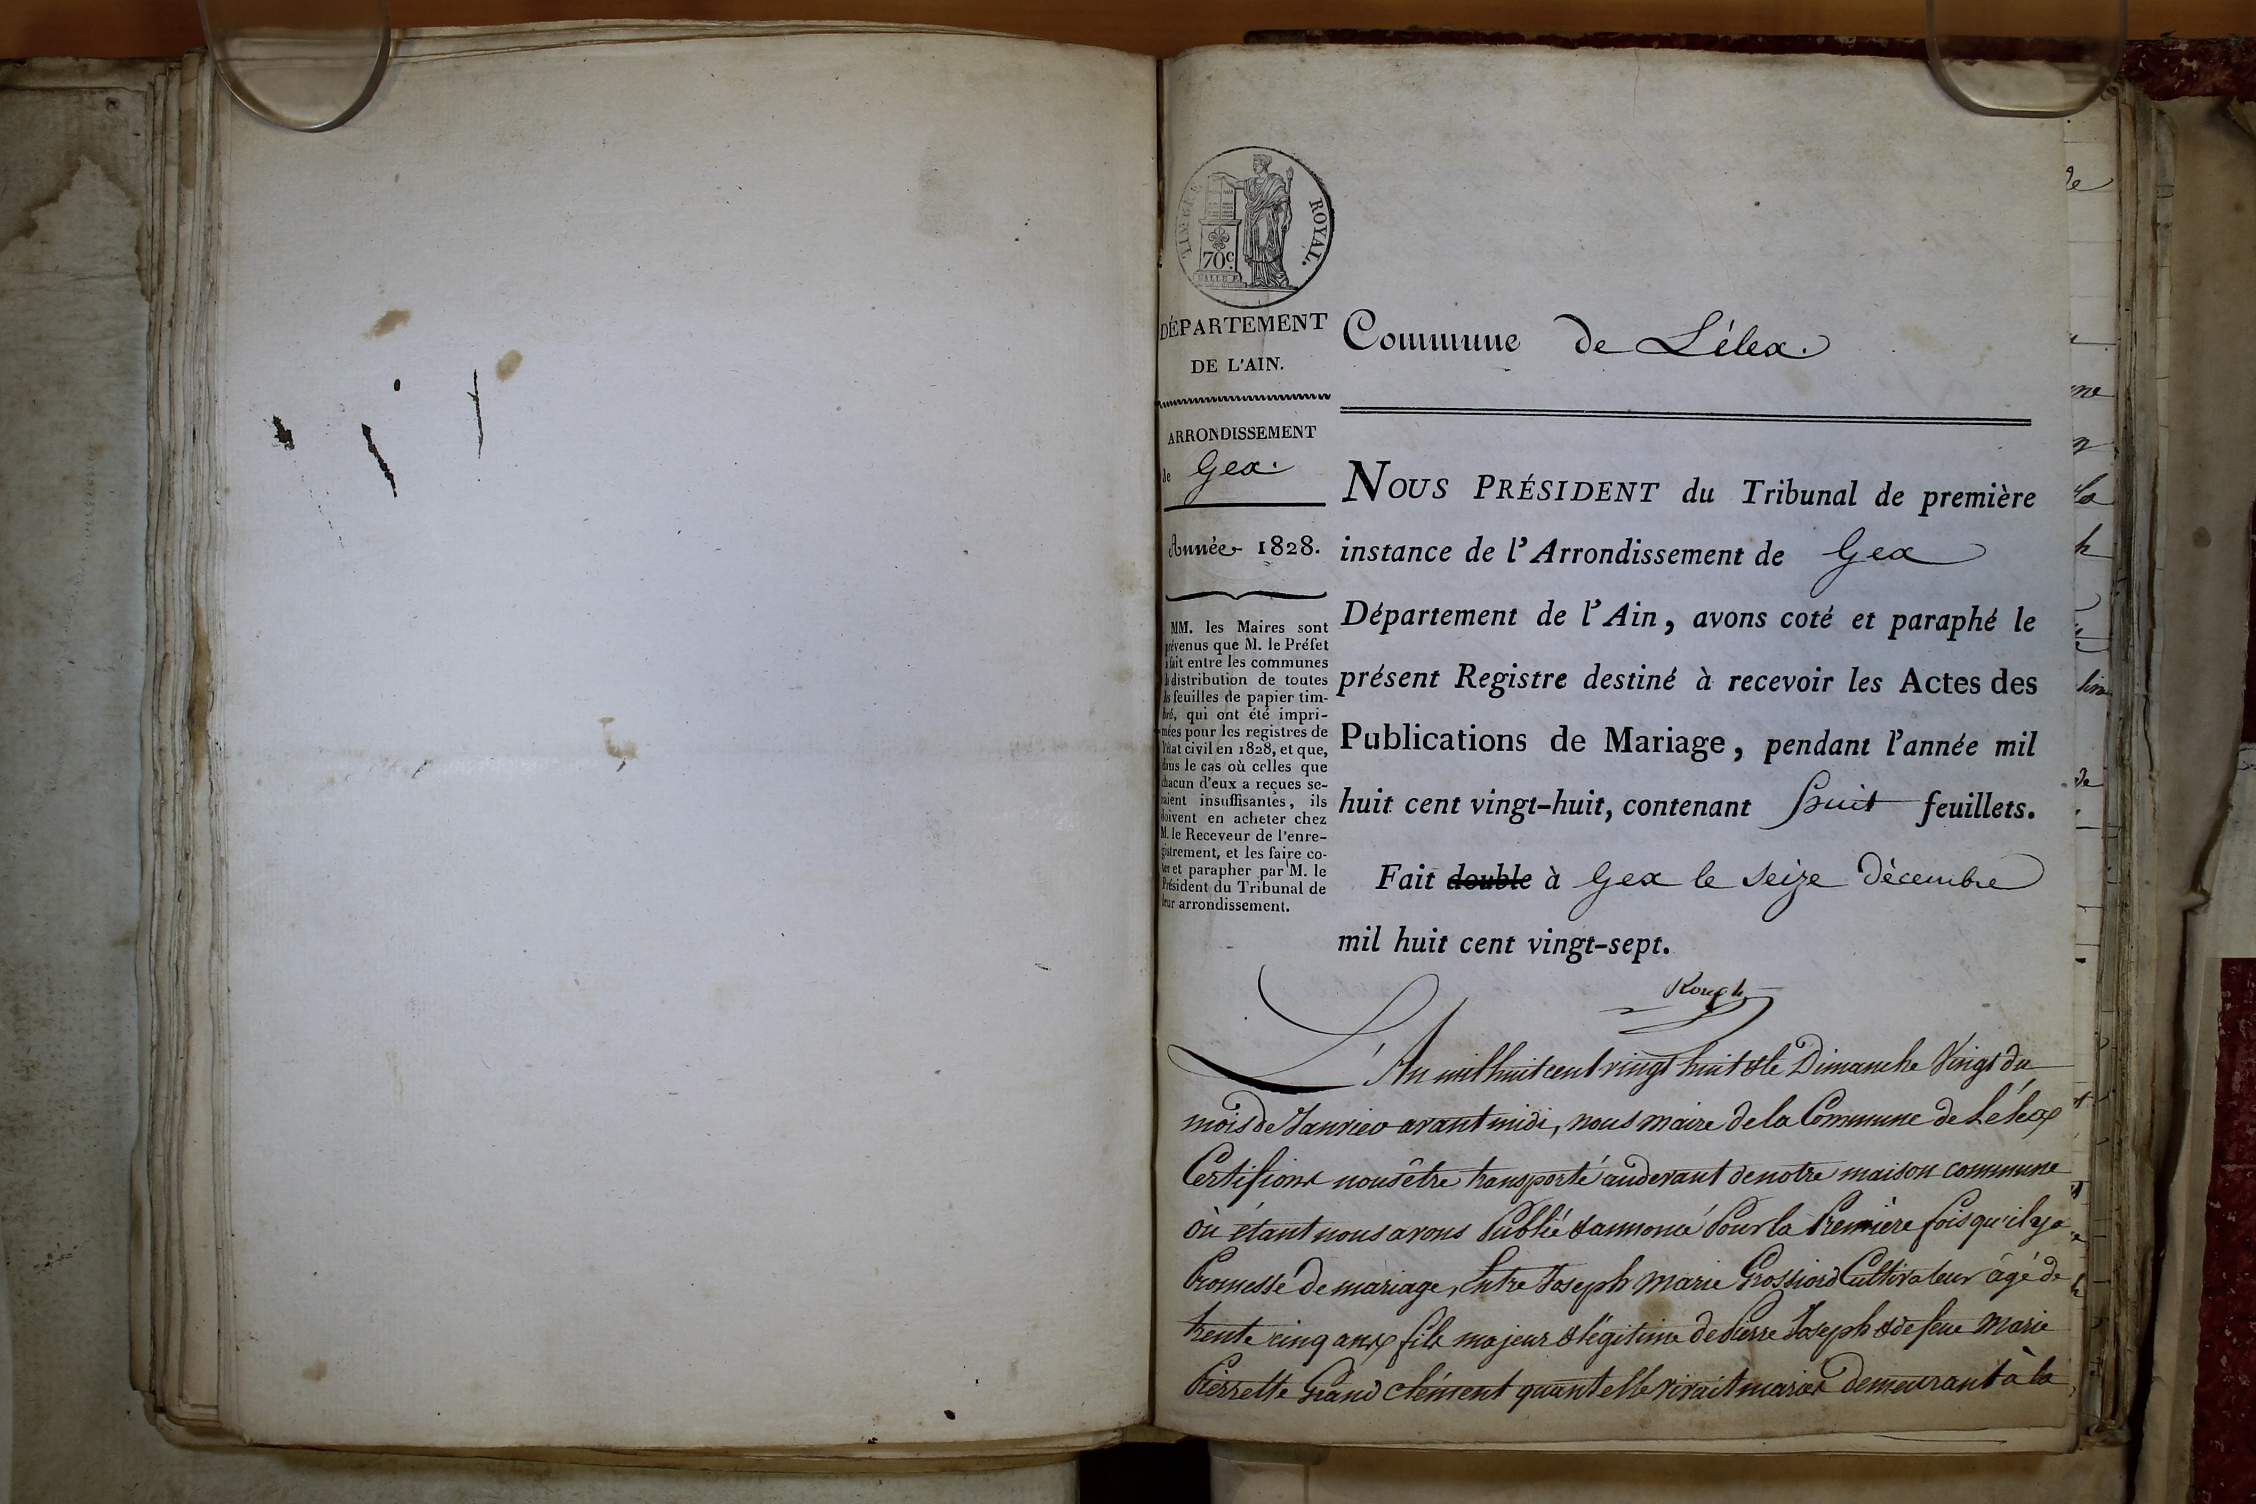 TIMBRE ROYAL.
70c
DÉPARTEMENT
DE L'AIN.
ARRONDISSEMENT
de Gex.
Année 1828.
MM. les Maires sont
prévenus que M. le Préfet
a fait entre les communes
la distribution de toutes
les feuilles de papier tim-
bré, qui ont été impri-
mées pour les registres de
l'état civil en 1828, et que,
dans le cas où celles que
chacun d'eux a reçues se-
raient insuffisantes, ils
doivent en acheter chez
M. le Receveur de l'enre-
gistrement, et les faire co-
ter et parapher par M. le
Président du Tribunal de
leur arrondissement.
Commune de Lélex.
NOUS PRÉSIDENT du Tribunal de première
instance de l'Arrondissement de Gex
Département de l'Ain, avons coté et paraphé le
présent Registre destiné à recevoir les Actes des
Publications de Mariage, pendant l'année mil
huit cent vingt-huit, contenant huit feuillets.
Fait double à Gex le seize Décembre
mil huit cent vingt-sept.
L'An mil huit cent vingt huit & le Dimanche Vingt du
mois de Janvier avant midi, nous maire de la Commune de Lélex
Certifions nous être transporté audevant de notre maison commune
où étant nous avons Publié & annoncé Pour la Première fois qu'il y a
Promesse de mariage, Entre Joseph Marie Grossiord Cultivateur âgé de
trente cinq ans, fils majeur & légitime de Pierre Joseph & de feue Marie
Pierrette Grand clément quant elle vivait mariés demeurant à la